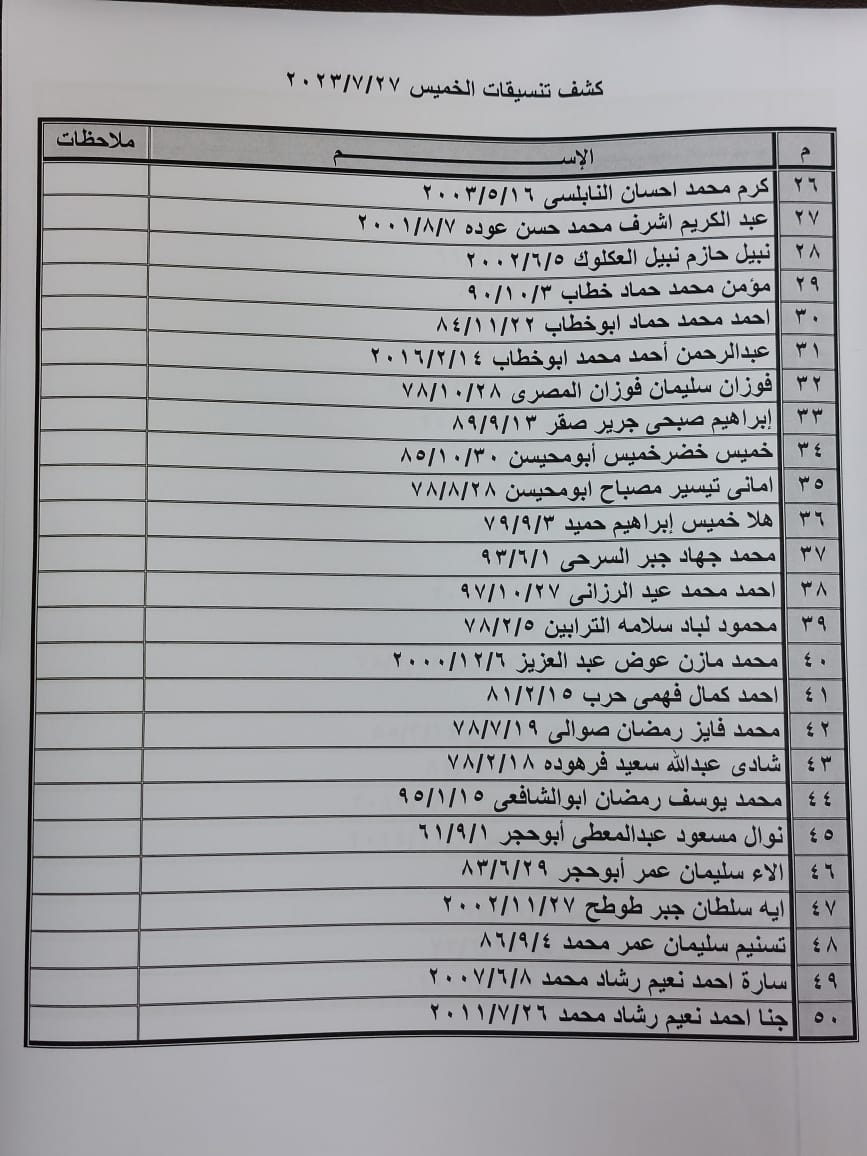 كشف تنسيقات الخميس ٢٠٢٣/٧/٢٧
م الإســـــــــم ملاحظات
٢٦ كرم محمد احسان النابلسى ٢٠٠٣/٥/١٦
٢٧ عبد الكريم اشرف محمد حسن عوده ٢٠٠١/٨/٧
٢٨ نبيل حازم نبيل العكلوك ٢٠٠٢/٦/٥
٢٩ مؤمن محمد حماد خطاب ٩٠/١٠/٣
٣٠ احمد محمد حماد ابوخطاب ٨٤/١١/٢٢
٣١ عبدالرحمن أحمد محمد ابوخطاب ٢٠١٦/٢/١٤
٣٢ فوزان سليمان فوزان المصرى ٧٨/١٠/٢٨
٣٣ إبراهيم صبحى جرير صقر ٨٩/٩/١٣
٣٤ خميس خضرخميس أبومحيسن ٨٥/١٠/٣٠
٣٥ امانى تيسير مصباح ابومحيسن ٧٨/٨/٢٨
٣٦ هلا خميس إبراهيم حميد ٧٩/٩/٣
٣٧ محمد جهاد جبر السرحى ٩٣/٦/١
٣٨ احمد محمد عيد الرزانى ٩٧/١٠/٢٧
٣٩ محمود لباد سلامه الترابين ٧٨/٢/٥
٤٠ محمد مازن عوض عبد العزيز ٢٠٠٠/١٢/٦
٤١ احمد كمال فهمى حرب ٨١/٢/١٥
٤٢ محمد فايز رمضان صوالى ٧٨/٧/١٩
٤٣ شادى عبدالله سعيد فرهوده ٧٨/٢/١٨
٤٤ محمد يوسف رمضان ابوالشافعى ٩٥/١/١٥
٤٥ نوال مسعود عبدالمعطى أبوحجر ٦١/٩/١
٤٦ الاء سليمان عمر أبوحجر ٨٣/٦/٢٩
٤٧ ايه سلطان جبر طوطح ٢٠٠٢/١١/٢٧
٤٨ تسنيم سليمان عمر محمد ٨٦/٩/٤
٤٩ سارة احمد نعيم رشاد محمد ٢٠٠٧/٦/٨
٥٠ جنا احمد نعيم رشاد محمد ٢٠١١/٧/٢٦